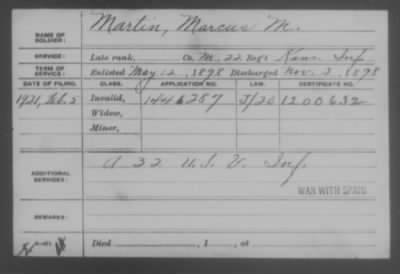 NAME OF SOLDIER: Martin, Marcus M.
SERVICE: Late rank, Co. M, 22 Reg't Kans. Inf
TERM OF SERVICE: Enlisted May 12, 1898 Discharged Nov. 3, 1898
DATE OF FILING. CLASS. APPLICATION NO. LAW. CERTIFICATE NO.
1921, Feb. 5 Invalid, 1446287 J/20 1200632
Widow,
Minor,
ADDITIONAL SERVICES: A 32 U.S.V. Inf.
WAR WITH SPAIN
REMARKS:
Died , 1 , at